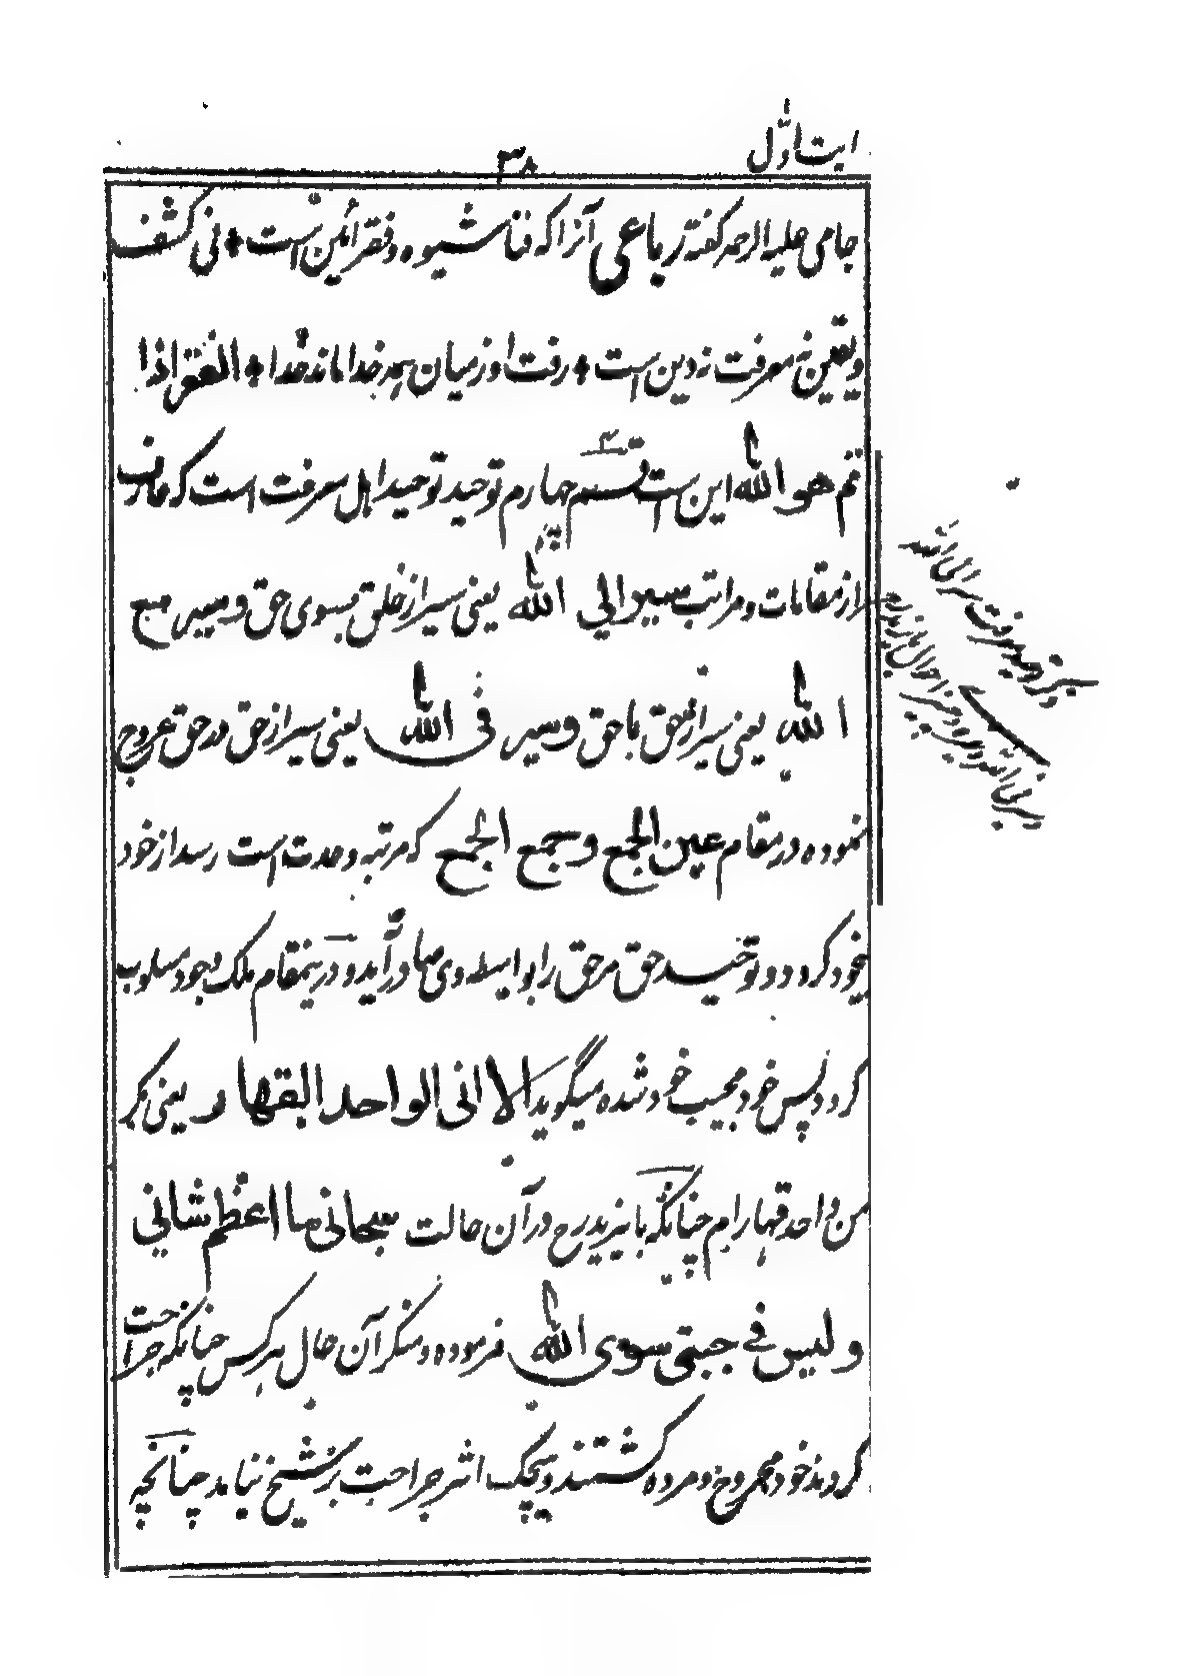 ایت اوّل
۳۸
جامی علیه الرحمه گفته رباعی آنرا که فنا شیوه و فقر آئین است ٭ نی کشف
و یقین نه معرفت نه دین است ٭ رفت او ز میان همه خدا ماند خدا ٭ الفقر اذا
تم هو الله این ست قسم چهارم توحید توحید اهل معرفت است که عارف
از مقامات و مراتب سیر الی الله یعنی سیر از خلق بسوی حق و سیر مع
الله یعنی سیر از حق با حق و سیر فی الله یعنی سیر از حق در حق عروج
نموده در مقام عین الجمع و جمع الجمع که مرتبه وحدت است رسد از خود
بیخود گردد و توحید حق مر حق را بواسطه وی صادر آید و درینمقام ملک وجود مسلوب
گردد پس خود مجیب خود شده میگوید الا انی الواحد القهار یعنی مگر
من واحد قهارام چنانکه بایزید رح در آن حالت سبحانی ما اعظم شانی
و لیس فی جبتی سوی الله فرموده و منکر آن حال هر کس چنانکه جراحت
کردند خود مجروح و مرده گشتند و هیچک اثر جراحت بر شیخ نیامد چنانچه